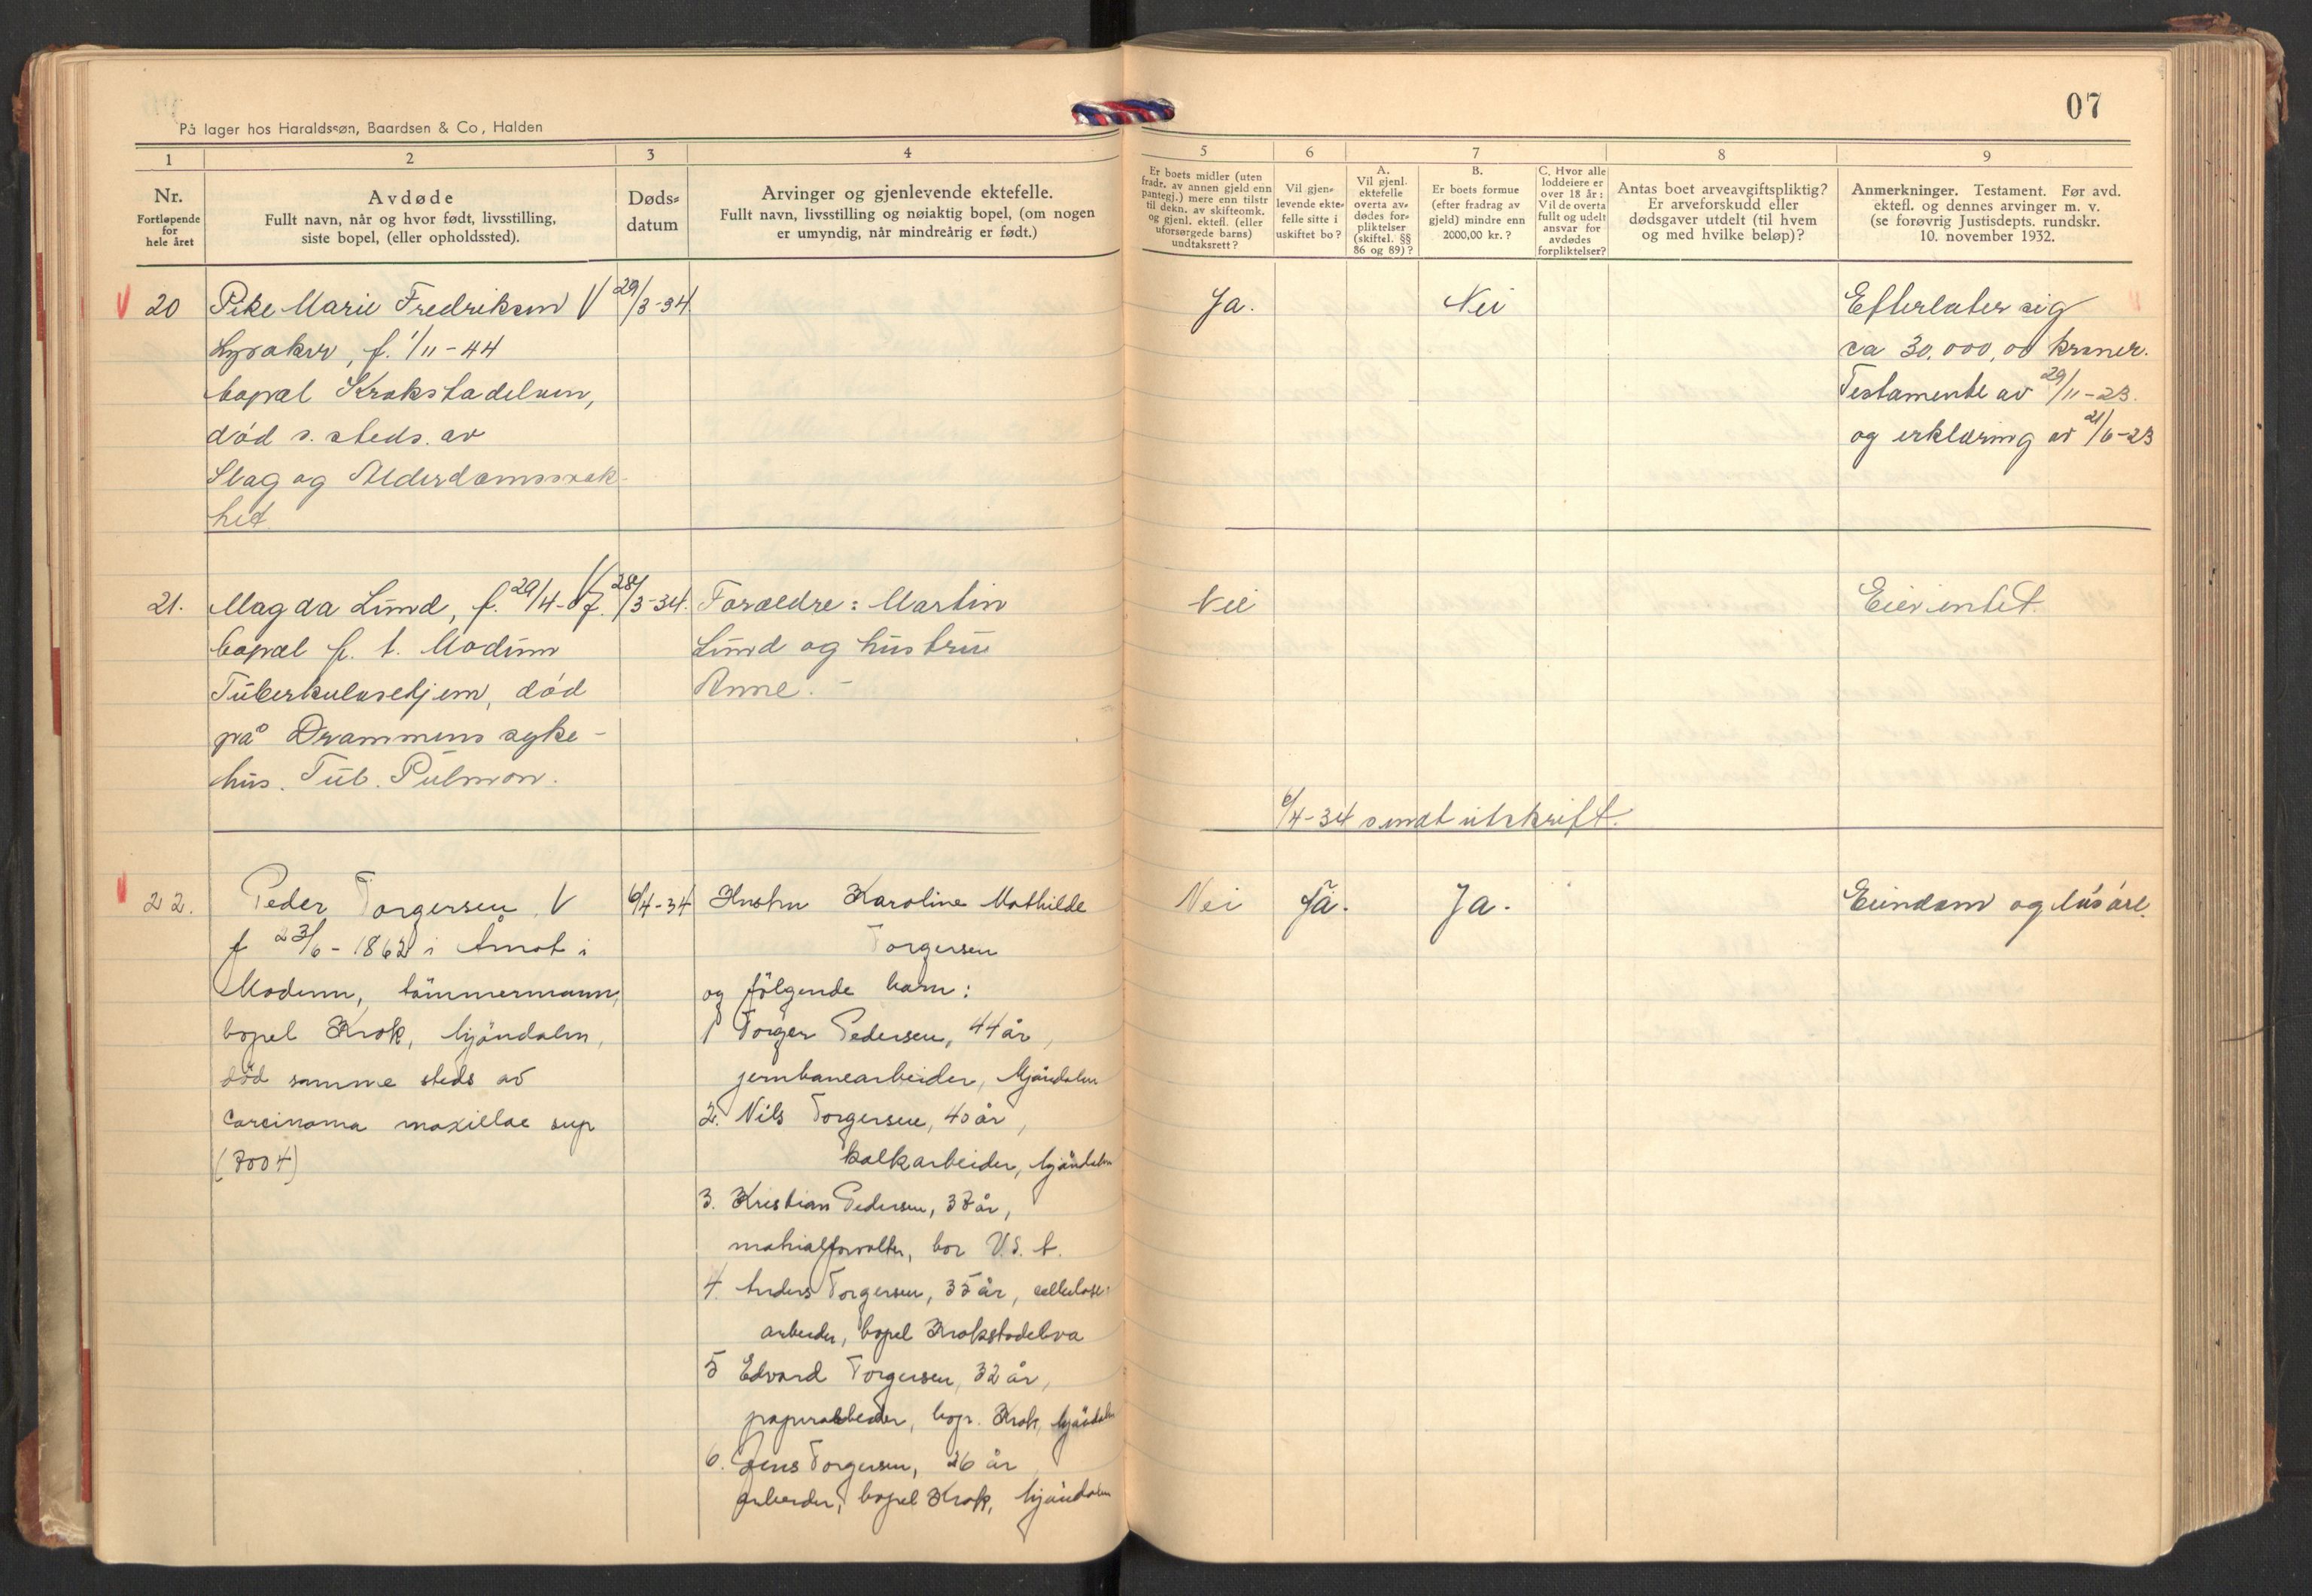 07
På lager hos Haraldssøn, Baardsen & Co, Halden
1
2
3
4
5
6
7
8
9
Nr.
Fortløpende
for
hele året
Avdøde
Fullt navn, når og hvor født, livsstilling,
siste bopel, (eller opholdssted).
Døds-
datum
Arvinger og gjenlevende ektefelle.
Fullt navn, livsstilling og nøiaktig bopel, (om nogen
er umyndig, når mindreårig er født.)
Er boets midler (uten
fradr. av annen gjeld enn
pantegj.) mere enn tilstr
til dekn. av skifteomk.
og gjenl. ektefl. (eller
uforsørgede barns)
undtaksrett?
Vil gjen-
levende ekte-
felle sitte i
uskiftet bo?
A.
Vil gjenl.
ektefelle
overta av-
dødes for-
pliktelser
(skiftel. §§
86 og 89)?
B.
Er boets formue
(efter fradrag av
gjeld) mindre enn
2000,00 kr.?
C. Hvor alle
loddeiere er
over 18 år:
Vil de overta
fullt og udelt
ansvar for
avdødes
forpliktelser?
Antas boet arveavgiftspliktig?
Er arveforskudd eller
dødsgaver utdelt (til hvem
og med hvilke beløp)?
Anmerkninger. Testament. Før avd.
ektefl. og dennes arvinger m. v.
(se forøvrig Justisdepts. rundskr.
10. november 1932.
V 20
Pike Marie Fredriksen V
f. 1/11-44
bopæl Krokstadelven,
død s. steds. av
Slag og Alderdomssvak-
het
29/3-34
Ja.
Nei
Efterlater sig
ca 30.000,00 kroner.
Testamente av 29/11-23.
og erklæring av 21/6-23
21.
Magda Lund, f. 29/4-07. V
bopæl p. t. Modum
Tuberkulosehjem, død
på Drammens syke-
hus. Tub. Pulmon.
28/3-34.
Foreldre: Martin
Lund og hustru
Anne. -
Nei
Eier intet.
6/4-34 sendt utskrift.
22.
Peder Torgersen V
f 23/6-1862 i Åmot i
Modum, tømmermann,
bopel Krok, Mjøndalen,
död samme steds av
Carcinoma maxillae sup
6/4-34
Hustru Karoline Mathilde
Torgersen
og følgende barn:
1 Torger Pedersen, 44 år,
jernbanearbeider, Mjøndalen
2. Nils Torgersen, 40 år,
kalkarbeider, Mjøndalen
3. Kristian Pedersen, 37 år,
bor U.S.A.
4. Anders Torgersen, 35 år, cellulose-
arbeider, bopel Krokstadelva
5 Edvard Torgersen, 32 år,
papirarbeider, bop. Krok, Mjøndalen
6. Jens Torgersen, 26 år
arbeider, bopel Krok, Mjøndalen
Nei
Ja.
Ja.
Eiendom og